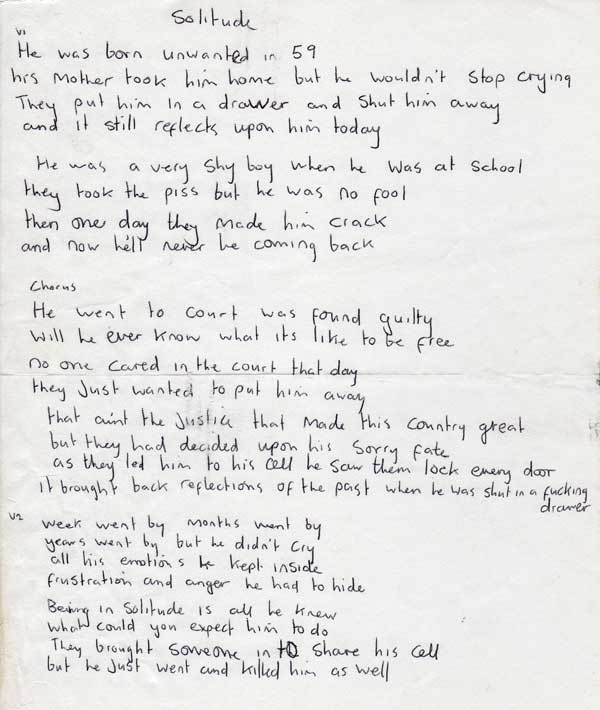 Solitude
V1
He was born unwanted in 59
his Mother took him home but he wouldn't stop crying
They put him in a drawer and shut him away
and it still reflects upon him today
He was a very shy boy when he was at school
they took the piss but he was no fool
then one day they made him crack
and now he'll never be coming back
Chorus
He went to court was found guilty
Will he ever know what its like to be free
no one cared in the court that day
they just wanted to put him away
that aint the justice that made this country great
but they had decided upon his sorry fate
as they led him to his cell he saw them lock every door
it brought back reflections of the past when he was shut in a fucking
drawer
V2
week went by months went by
years went by but he didn't cry
all his emotions he kept inside
frustration and anger he had to hide
Being in solitude is all he knew
what could you expect him to do
They brought someone in to share his cell
but he just went and killed him as well